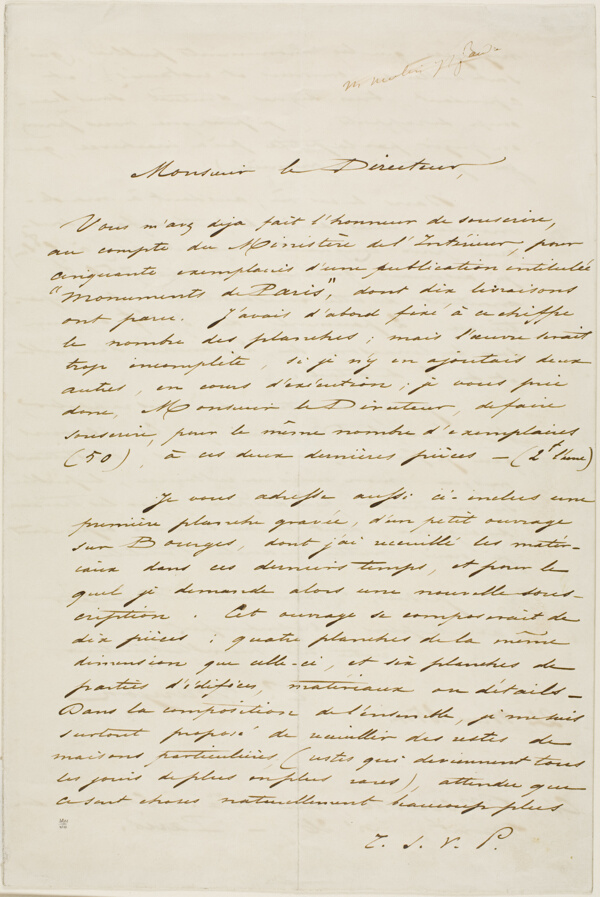 Monsieur le Directeur,
Vous m'avez deja fait l'honneur de souscrire,
au compte du Ministère de l'Intérieur, pour
cinquante exemplaires d'une publication intitulée
"Monuments de Paris", dont dix livraisons
ont paru. J'avais d'abord fixé à ce chiffre
le nombre des planches ; mais l'œuvre serait
trop incomplète, si je n'y en ajoutais deux
autres, en cours d'exécution ; je vous prie
donc, Monsieur le Directeur, de faire
souscrire, pour le même nombre d'exemplaires
(50), à ces deux dernières pièces — (2f l'une)
Je vous adresse aussi ci-inclus une
première planche gravée, d'un petit ouvrage
sur Bourges, dont j'ai recueilli les matér-
iaux dans ces derniers temps, et pour le
quel je demande alors une nouvelle sous-
cription. Cet ouvrage se composerait de
dix pièces : quatre planches de la même
dimension que celle-ci, et six planches de
parties d'édifices, matériaux ou détails —
Dans la composition de l'ensemble, je me suis
surtout proposé de recueillir des restes de
maisons particulières, (restes qui deviennent tous
les jours de plus en plus rares), attendu que
ce sont choses naturellement beaucoup plus
T. S. V. P.